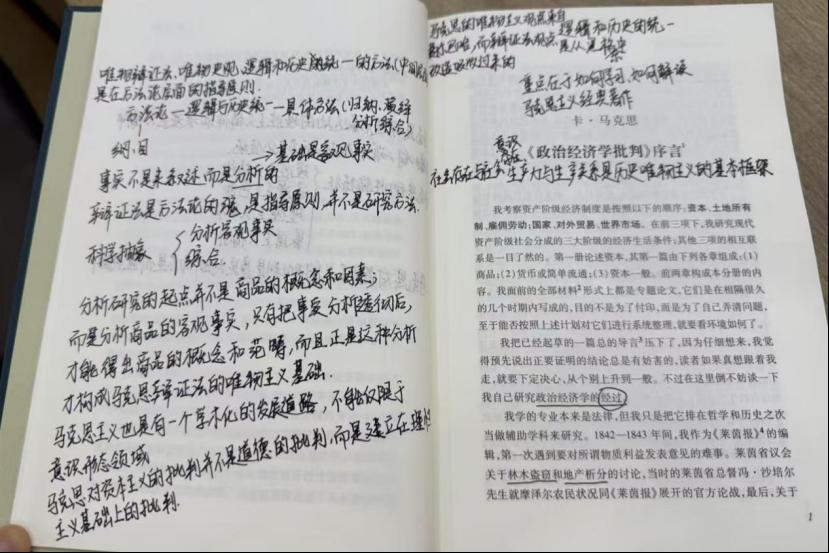 唯物辩证法、唯物史观、逻辑和历史的统一的方法(中国
是在方法论层面的指导原则.
方法论 — 逻辑与历史统一 — 具体方法(归纳、演绎
分析综合)
纲、目
→基础是客观事实
事实不是来叙述而是分析的
辩证法是方法论的 是指导原则,并不是研究方法.
科学抽象
分析客观事实
综合
分析研究的起点并不是商品的概念和因素,
而是分析商品的客观事实,只有把事实分析透彻后,
才能得出商品的概念和范畴,而且正是这种分析
才构成马克思辩证法的唯物主义基础.
马克思主义也是有一个学术化的发展道路,不能仅限于
意识形态领域
马克思对资本主义的批判并不是道德的批判,而是建立在理性
主义基础上的批判.
马克思的唯物主义观点来自 逻辑和历史的统一
而辩证法观点 是从黑格尔
改造吸收过来的
重点在于如何学习、如何解读
马克思主义经典著作
卡·马克思
意识
《政治经济学批判》序言
社会存在与社会 生产力与生产关系是历史唯物主义的基本框架
我考察资产阶级经济制度是按照以下的顺序:资本、土地所有
制、雇佣劳动;国家、对外贸易、世界市场。在前三项下,我研究现代
资产阶级社会分成的三大阶级的经济生活条件;其他三项的相互联
系是一目了然的。第一册论述资本,其第一篇由下列各章组成:(1)
商品;(2)货币或简单流通;(3)资本一般。前两章构成本分册的内
容。我面前的全部材料²形式上都是专题论文,它们是在相隔很久
的几个时期内写成的,目的不是为了付印,而是为了自己弄清问题,
至于能否按照上述计划对它们进行系统整理,就要看环境如何了。
我把已经起草的一篇总的导言³压下了,因为仔细想来,我觉
得预先说出正要证明的结论总是有妨害的,读者如果真想跟着我
走,就要下定决心,从个别上升到一般。不过在这里倒不妨谈一下
我自己研究政治经济学的经过。
我学的专业本来是法律,但我只是把它排在哲学和历史之次
当做辅助学科来研究。1842—1843年间,我作为《莱茵报》⁴的编
辑,第一次遇到要对所谓物质利益发表意见的难事。莱茵省议会
关于林木盗窃和地产析分的讨论,当时的莱茵省总督冯·沙培尔
先生就摩泽尔农民状况同《莱茵报》展开的官方论战,最后,关于
1